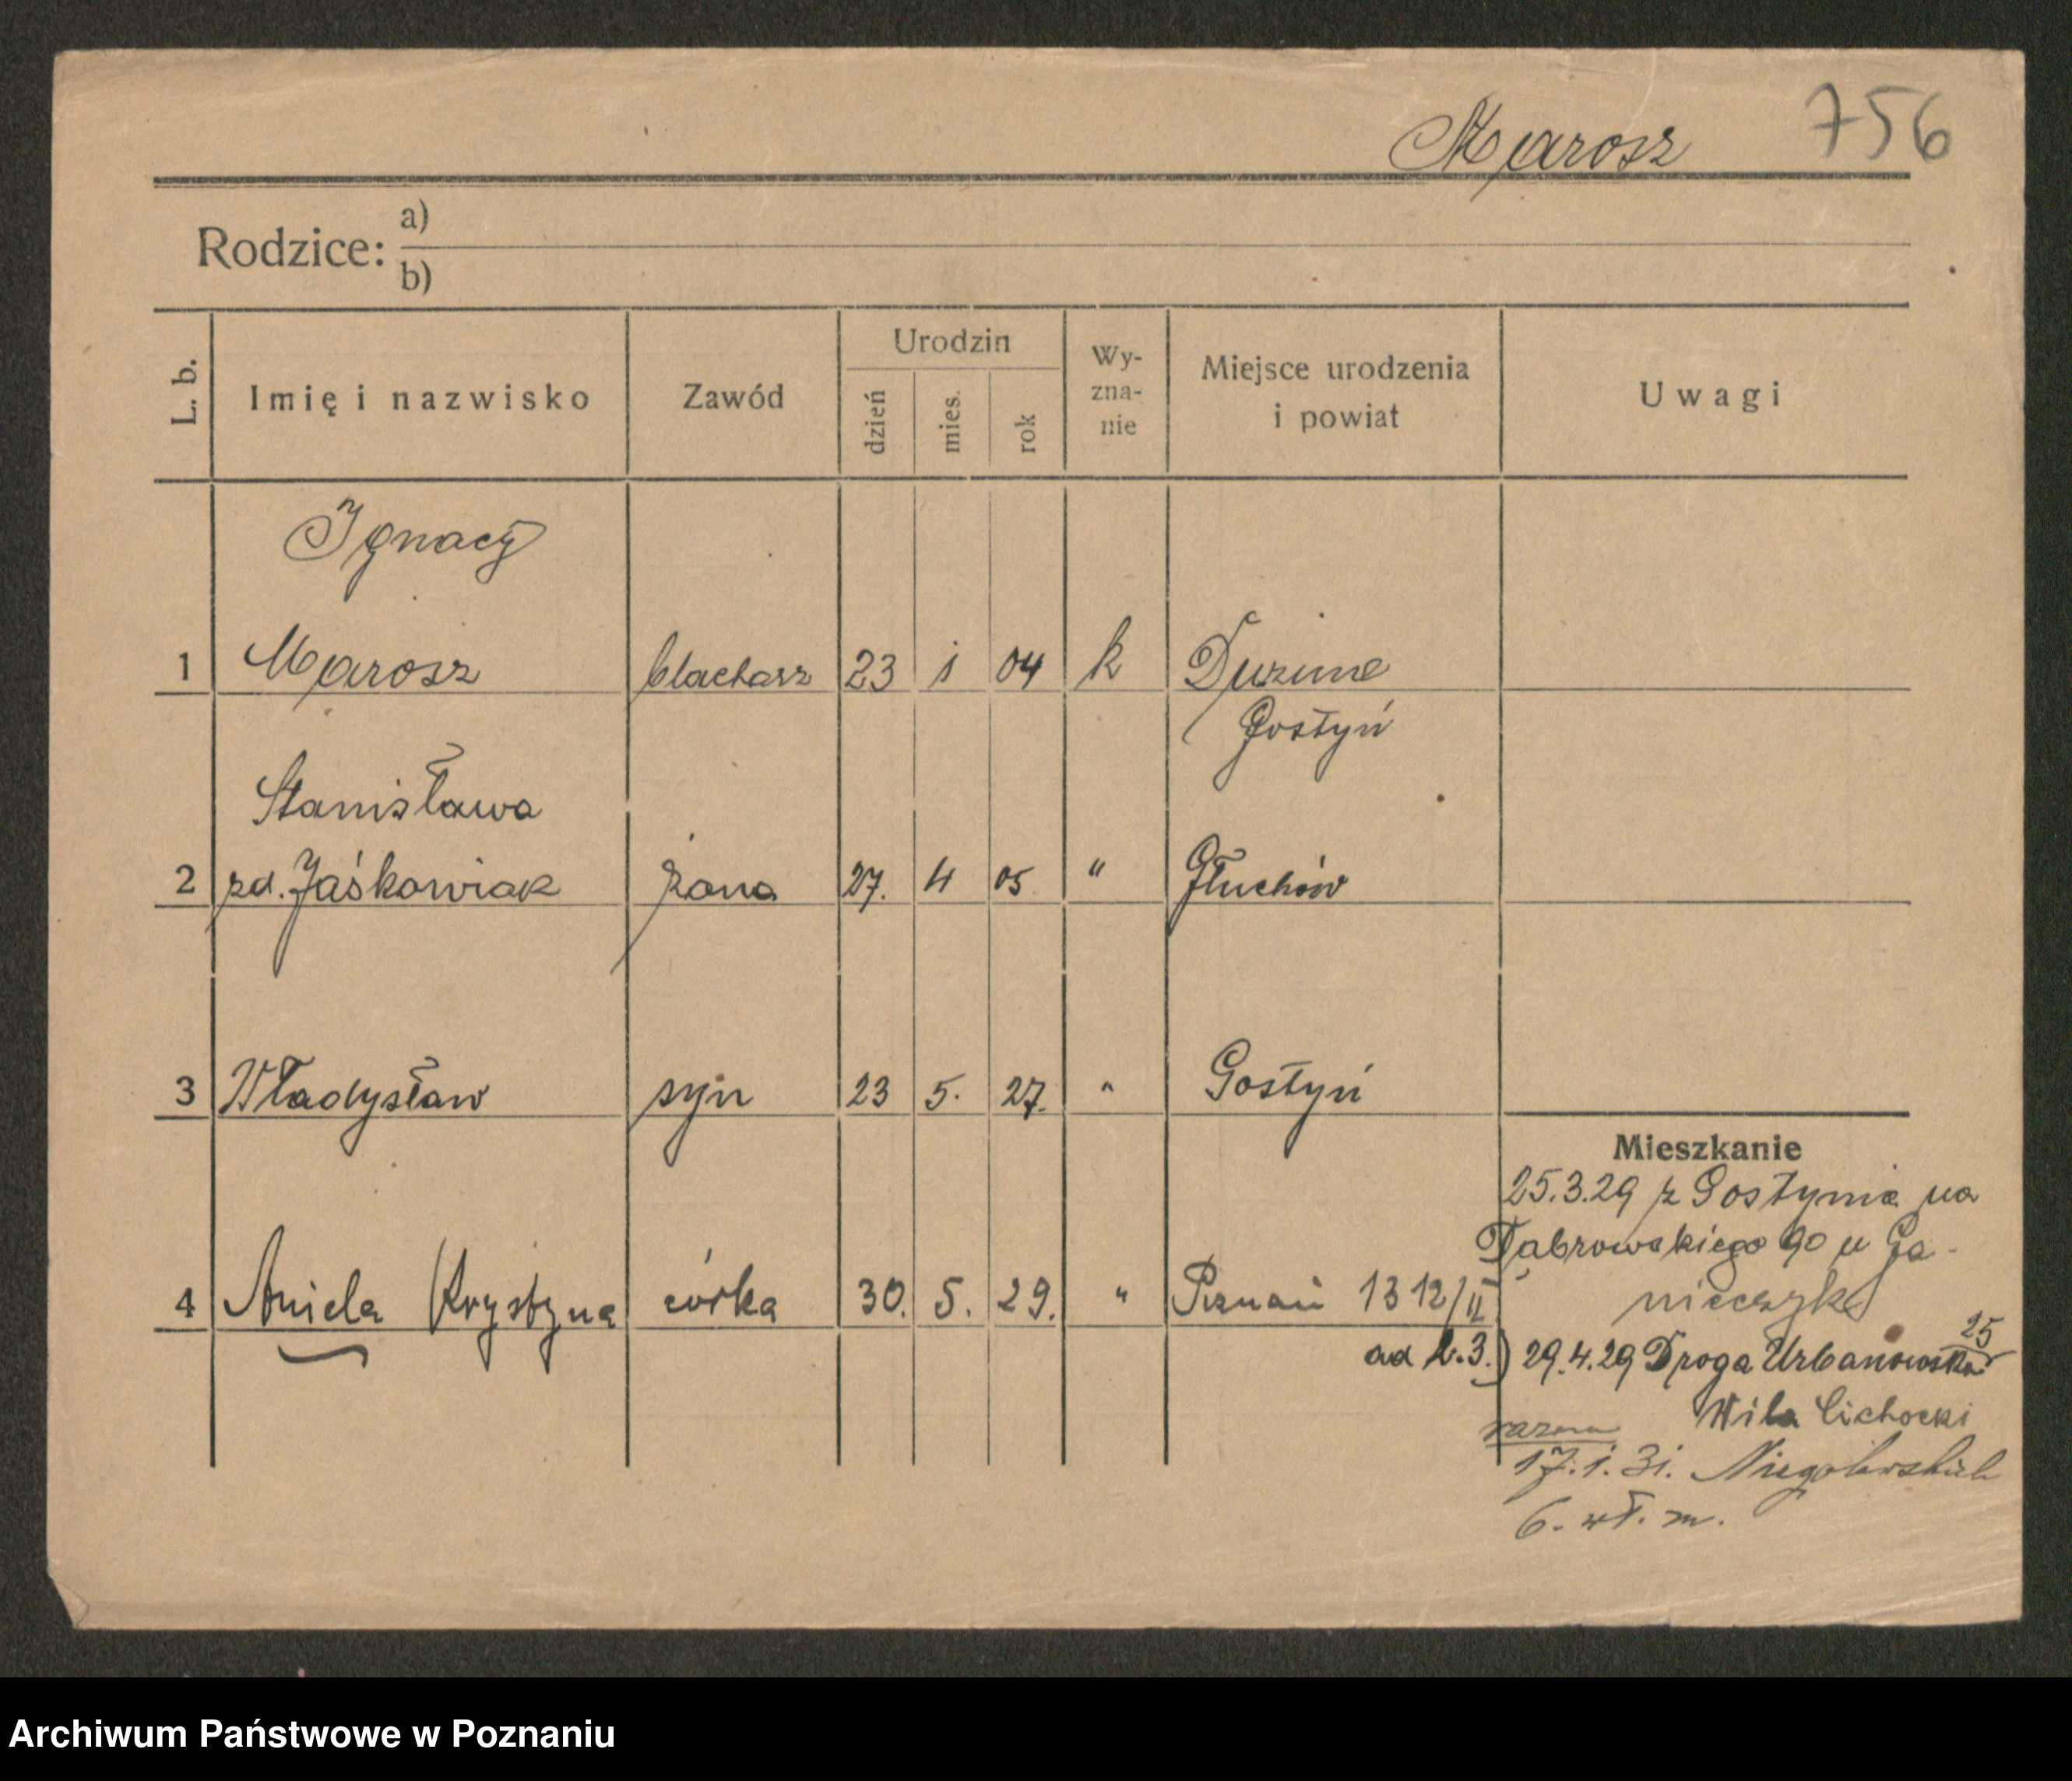 Marosz 756
Rodzice: a)
b)
L. b. Imię i nazwisko Zawód Urodzin dzień mies. rok Wy-zna-nie Miejsce urodzenia i powiat Uwagi
Ignacy
1 Marosz blacharz 23 1 04 k
Gostyń
Stanisława
2 zd. Jaśkowiak żona 27. 4 05 " Głuchów
3 Władysław syn 23 5. 27. " Gostyń
Mieszkanie
25.3.29 z Gostynia na
Dąbrowskiego 90 u Ga-
nieczyk
4 Aniela Krystyna córka 30. 5. 29. " Poznań 1312/II
25
ad L.3.) 29.4.29 Droga Urbanowska
Wila Cichocki
razem
17.1.31. Niegolewskich
6. wł. m.
Archiwum Państwowe w Poznaniu